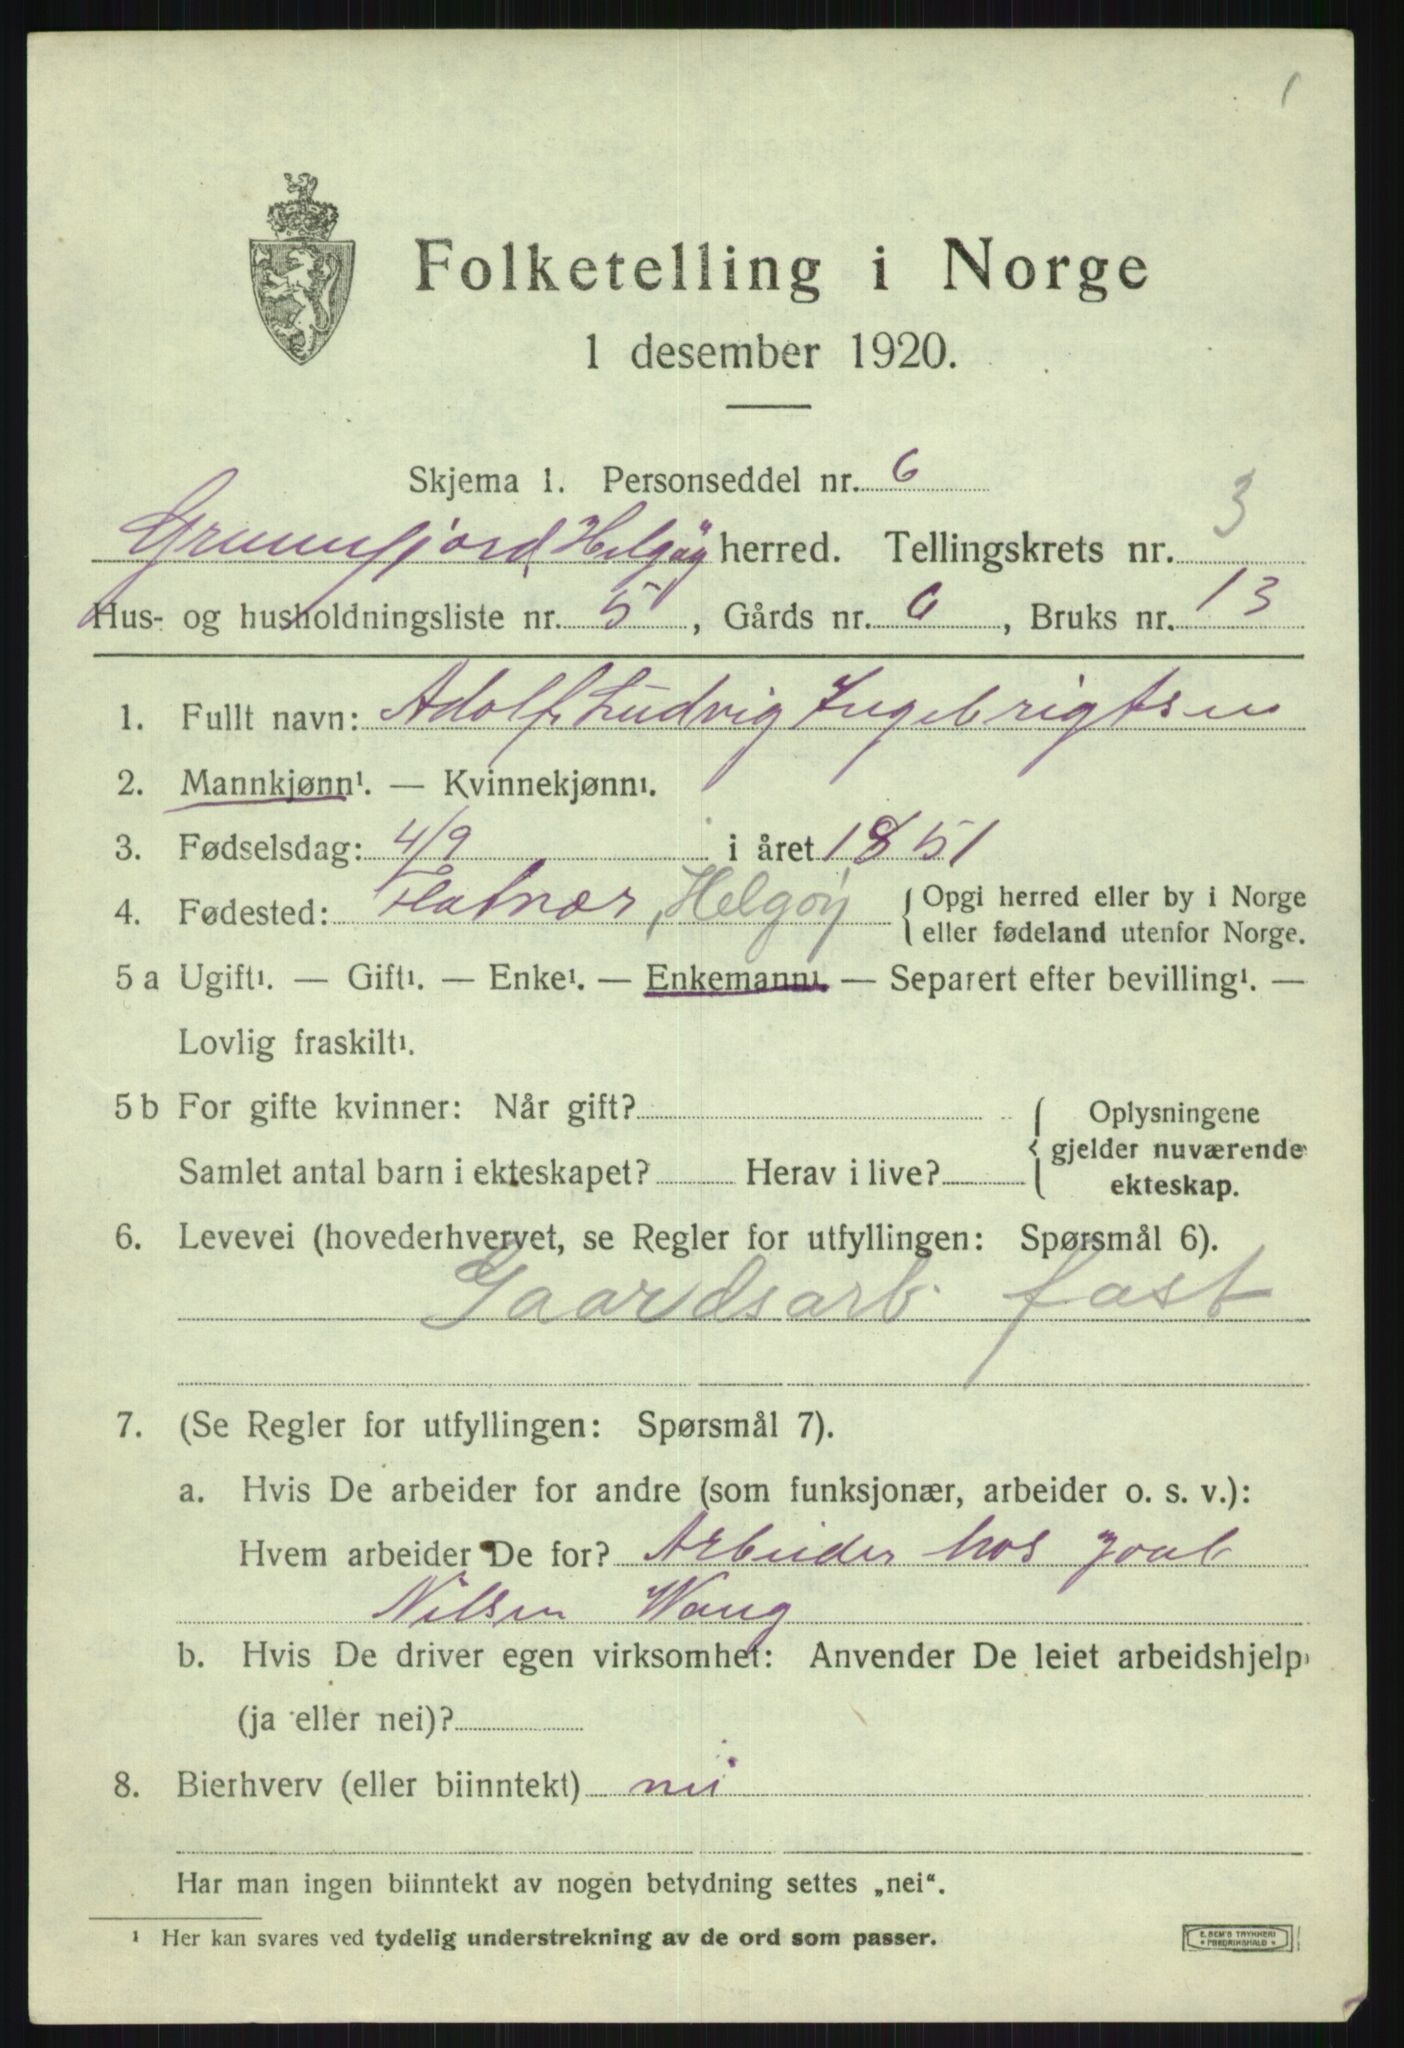 1
Folketelling i Norge
1 desember 1920.
Skjema 1. Personseddel nr. 6
Grunnfjord, Helgøy herred. Tellingskrets nr. 3
Hus- og husholdningsliste nr. 5, Gårds nr. 6, Bruks nr. 13
1. Fullt navn: Adolf Ludvig Ingebrigtsen
2. Mannkjønn¹. — Kvinnekjønn¹.
3. Fødselsdag: 4/9 i året 1851
4. Fødested: Flatvær, Helgøy { Opgi herred eller by i Norge
eller fødeland utenfor Norge.
5 a Ugift¹. — Gift¹. — Enke¹. — Enkemann¹. — Separert efter bevilling¹. —
Lovlig fraskilt¹.
5 b For gifte kvinner: Når gift? { Oplysningene
gjelder nuværende
Samlet antal barn i ekteskapet? Herav i live? ekteskap.
6. Levevei (hovederhvervet, se Regler for utfyllingen: Spørsmål 6).
Gaardsarb. fast
7. (Se Regler for utfyllingen: Spørsmål 7).
a. Hvis De arbeider for andre (som funksjonær, arbeider o. s. v.):
Hvem arbeider De for? Arbeider hos
Nilsen Wang
b. Hvis De driver egen virksomhet: Anvender De leiet arbeidshjelp
(ja eller nei)?
8. Bierhverv (eller biinntekt) nei
Har man ingen biinntekt av nogen betydning settes „nei“.
¹ Her kan svares ved tydelig understrekning av de ord som passer.
E. SEM'S TRYKKERI
• FREDRIKSHALD •